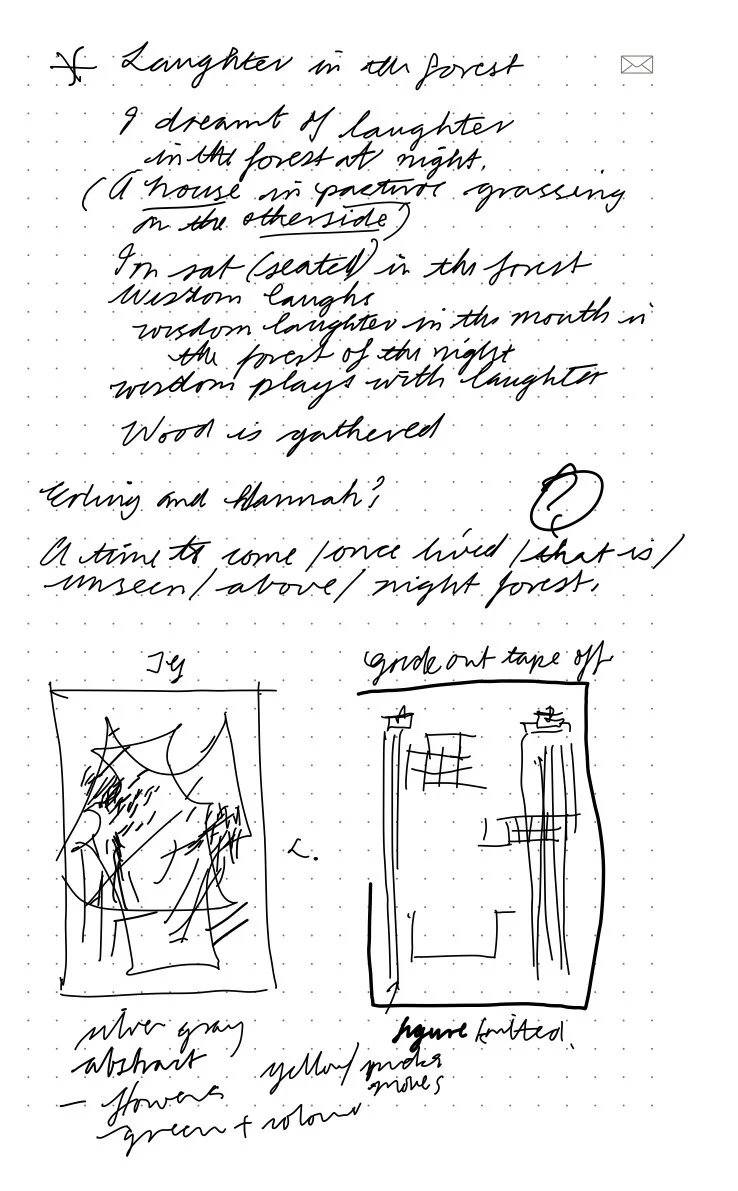 Laughter in the forest
I dreamt of laughter
in the forest at night.
(A house in grassing
on the otherside)
I'm sat (seated) in the forest
Wisdom laughs
wisdom laughter in the mouth in
the forest of the night
wisdom plays with laughter
Wood is gathered
Erling and Hannah?
?
A time to come / once lived / that is /
unseen / above / night forest.
out tape off
silver gray
abstract
figure
yellow/
- flowers
green + colour